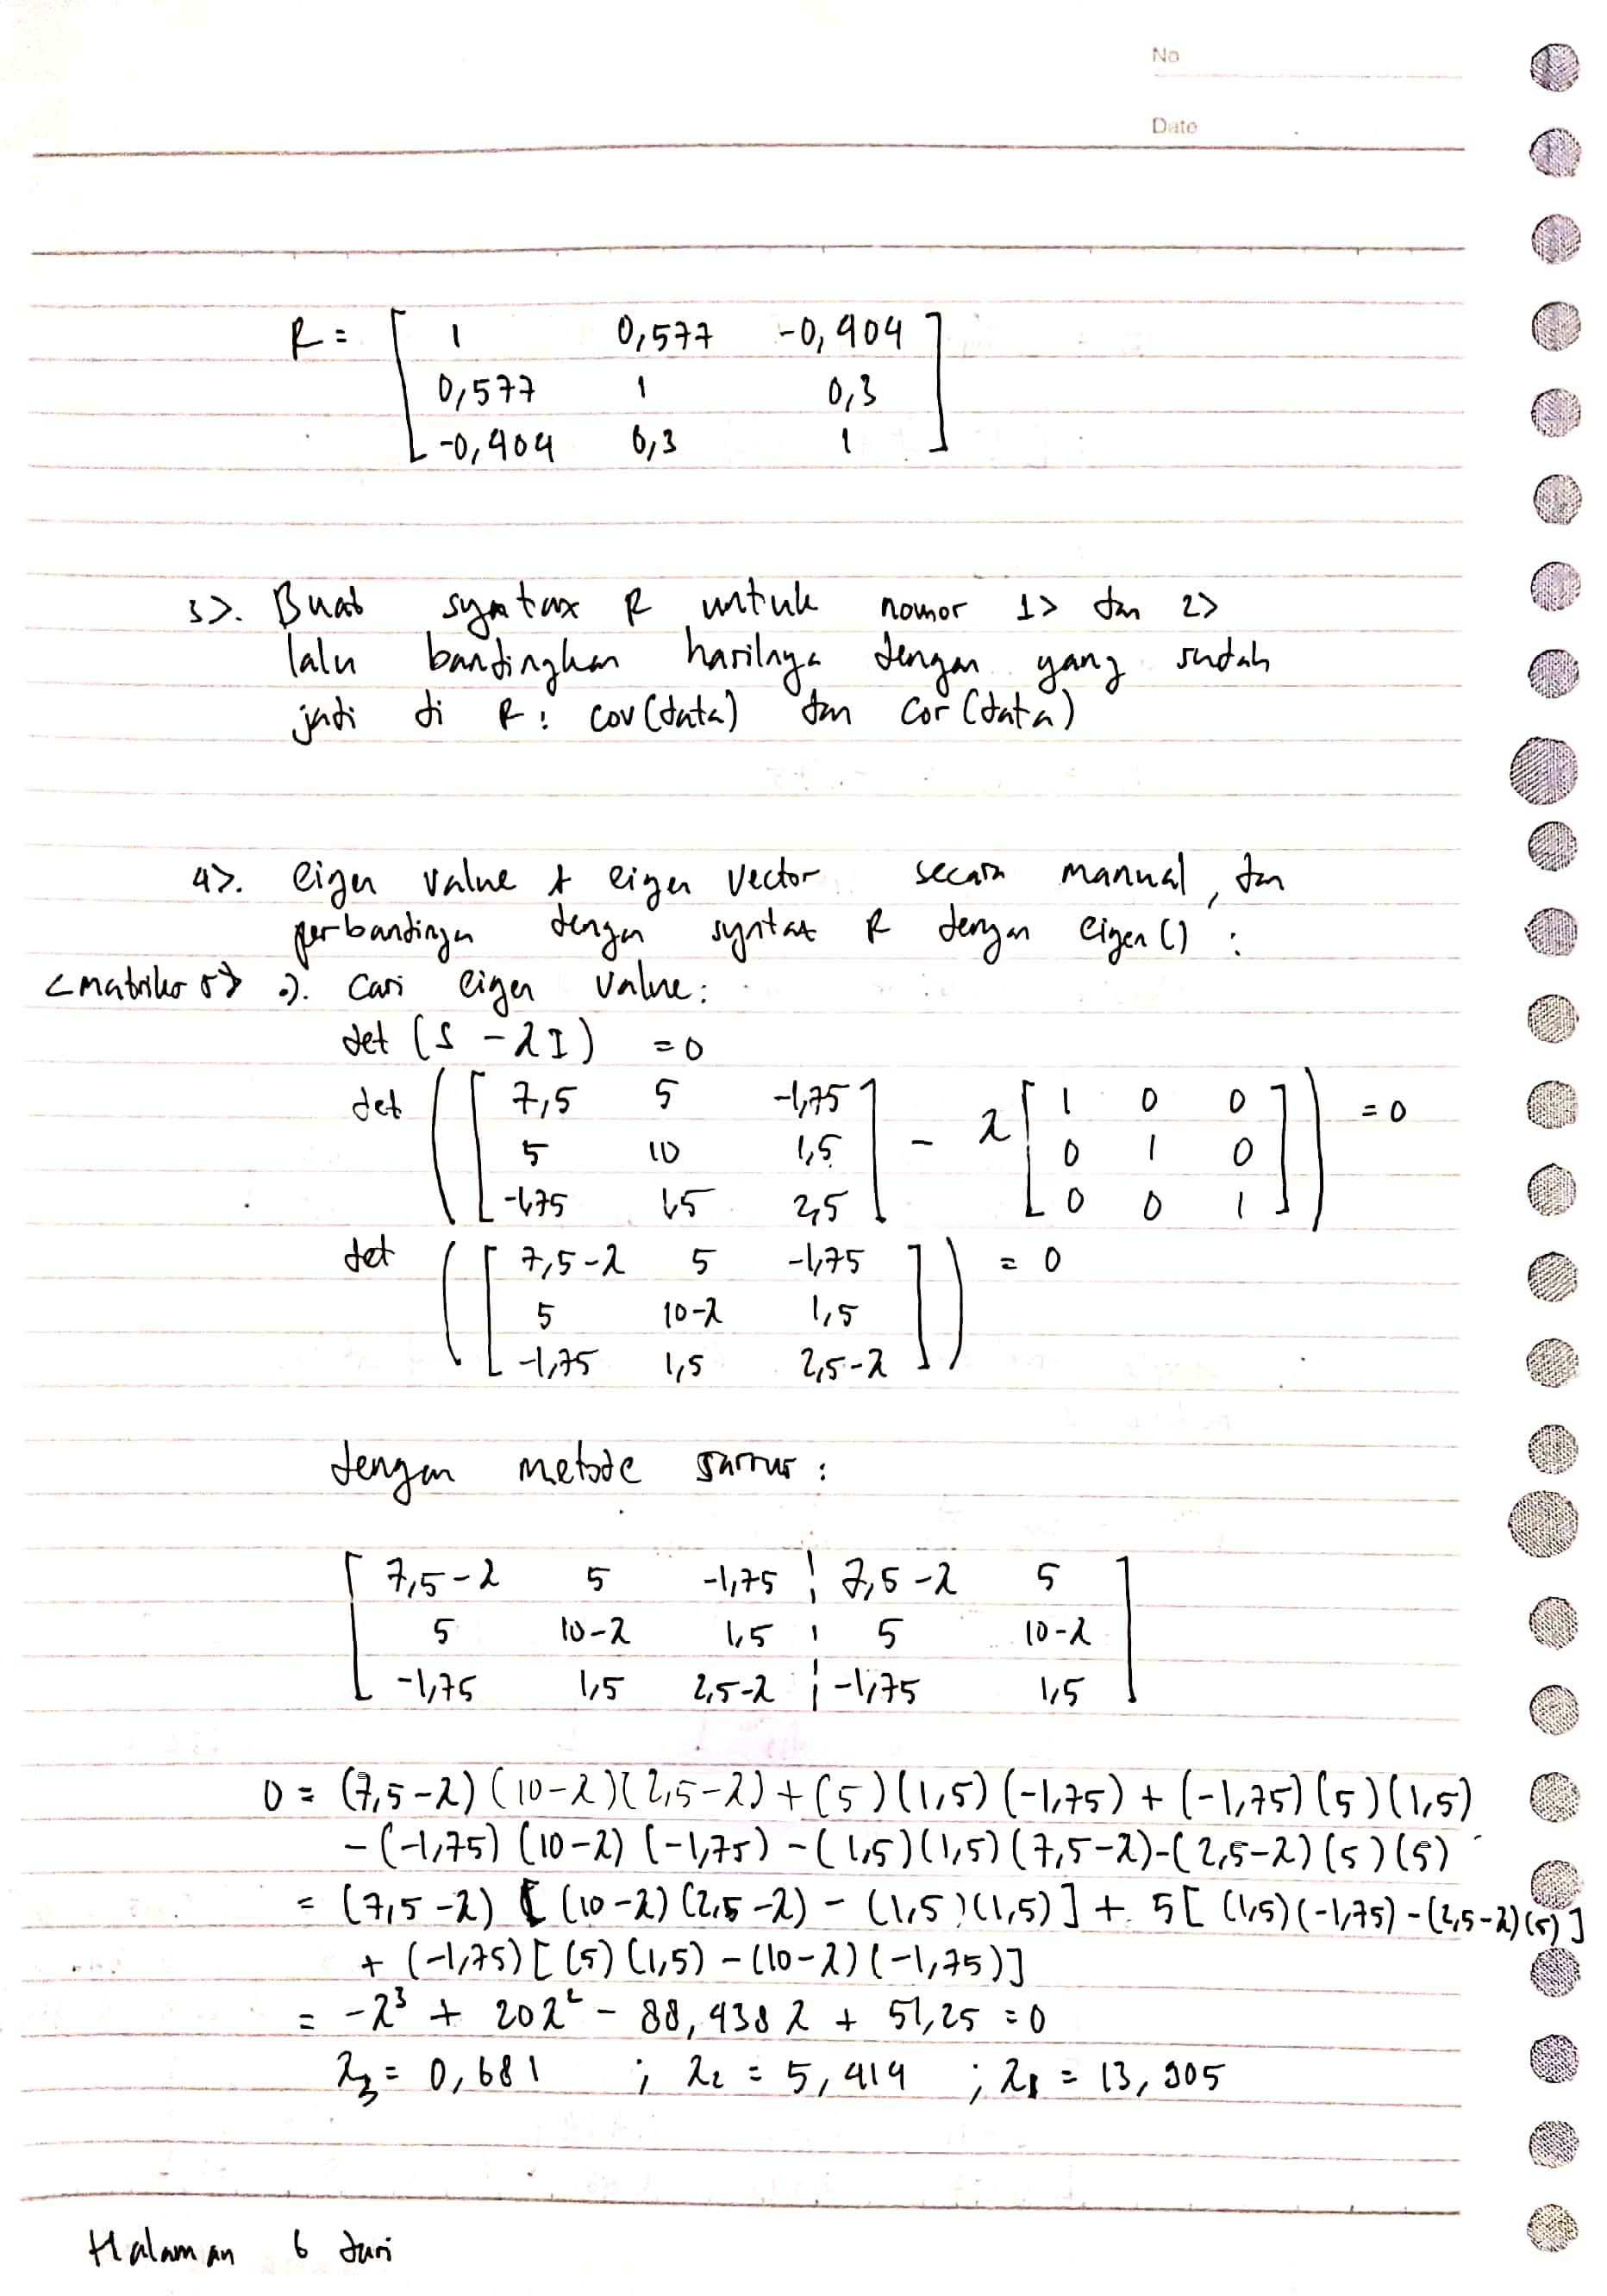 No
Date
R = [ 1 0,577 -0,404 ]
[ 0,577 1 0,3 ]
[ -0,404 0,3 1 ]
3>. Buat syntax R untuk nomor 1> dan 2>
lalu bandingkan hasilnya dengan yang sudah
jadi di R : cov(data) dan cor(data)
4>. eigen value & eigen vector secara manual, dan
perbandingan dengan syntax R dengan eigen() :
<matriks S> •). Cari eigen value:
det (S - λI) = 0
det ( [ 7,5 5 -1,75 ] - λ [ 1 0 0 ] ) = 0
[ 5 10 1,5 ] [ 0 1 0 ]
[ -1,75 1,5 2,5 ] [ 0 0 1 ]
det ( [ 7,5-λ 5 -1,75 ] ) = 0
[ 5 10-λ 1,5 ]
[ -1,75 1,5 2,5-λ ]
dengan metode sarrus :
[ 7,5-λ 5 -1,75 ¦ 7,5-λ 5 ]
[ 5 10-λ 1,5 ¦ 5 10-λ ]
[ -1,75 1,5 2,5-λ ¦ -1,75 1,5 ]
0 = (7,5-λ)(10-λ)(2,5-λ) + (5)(1,5)(-1,75) + (-1,75)(5)(1,5)
-(-1,75)(10-λ)(-1,75) - (1,5)(1,5)(7,5-λ)-(2,5-λ)(5)(5)
= (7,5-λ) [ (10-λ)(2,5-λ) - (1,5)(1,5) ] + 5[ (1,5)(-1,75) - (2,5-λ)(5) ]
+ (-1,75) [ (5)(1,5) - (10-λ)(-1,75) ]
= -λ³ + 20λ² - 88,438λ + 51,25 = 0
λ₃ = 0,681 ; λ₂ = 5,414 ; λ₁ = 13,905
Halaman 6 dari